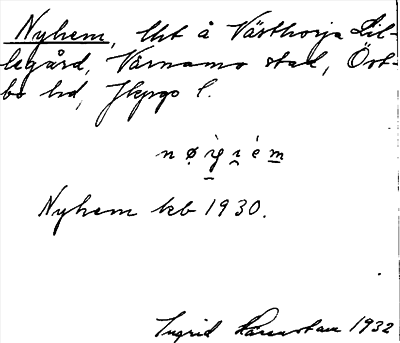 Nyhem, lht å Västhorja Lil-
legård, Värnamo stad, Öst-
bo hd, Jkpgs l.
Nyhem kb 1930.
Ingrid 1932